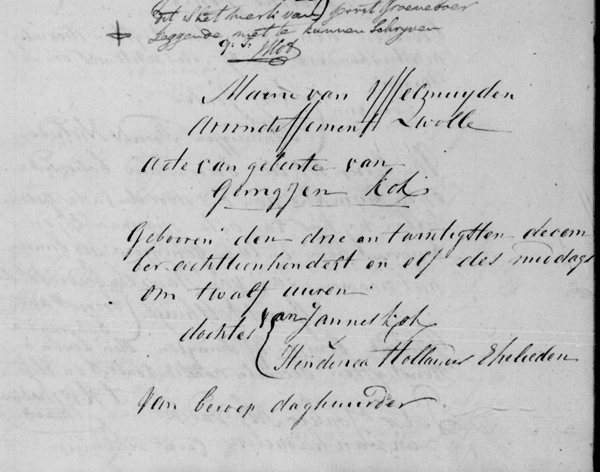 Dit Is het merk van Gerrit Groeneboer
Zeggende niet te kunnen Schryven
q. t.
JKok
Mairie van Ysselmuyden
Arrondissement Zwolle
Acte van geboorte van
Gerrigjen Kok
Gebooren den drie en twintigsten decem
ber achttienhonderd en elf des middags
om twalf uuren
dochter van Jannes Kok
Hendrica Hollander Ehelieden
Van beroep daghuurder